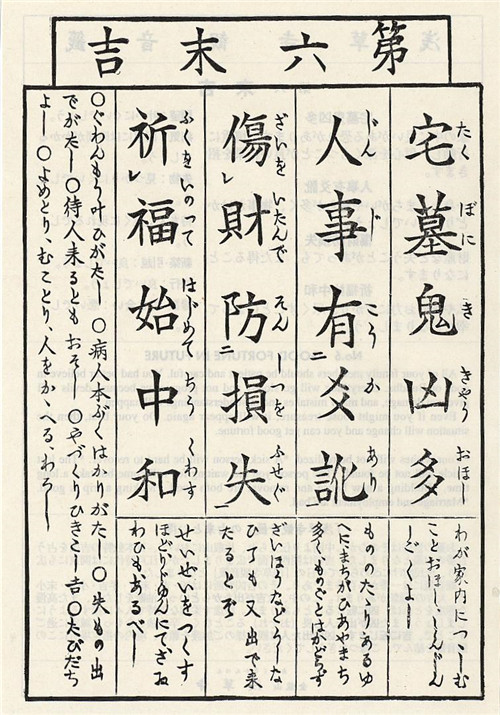 第六末吉
宅墓鬼凶多
たくぼにききやうおほ
わが家内につゝしむ
ことおほし、しんじん
しごくよし
人事有爻訛
じんじこうかあり
へにまちがひあやまち
多くものごとはかどらず
傷財防損失
ざいをいたんでそんしつをふせぐ
ざいほうなどしな
ひても又出で来
たるとぞ
祈福始中和
ふくをいのつてはじめてちうくわす
せいせいをつくす
わひもあるべし
〇ぐわんもう叶ひがたし〇病人本ぶくはかがたし〇失もの出
でがたし〇待人来るともおそし〇やづくりひきこし吉〇たびだち
よし〇よめとり、むことり、人をかゝへる、わろし